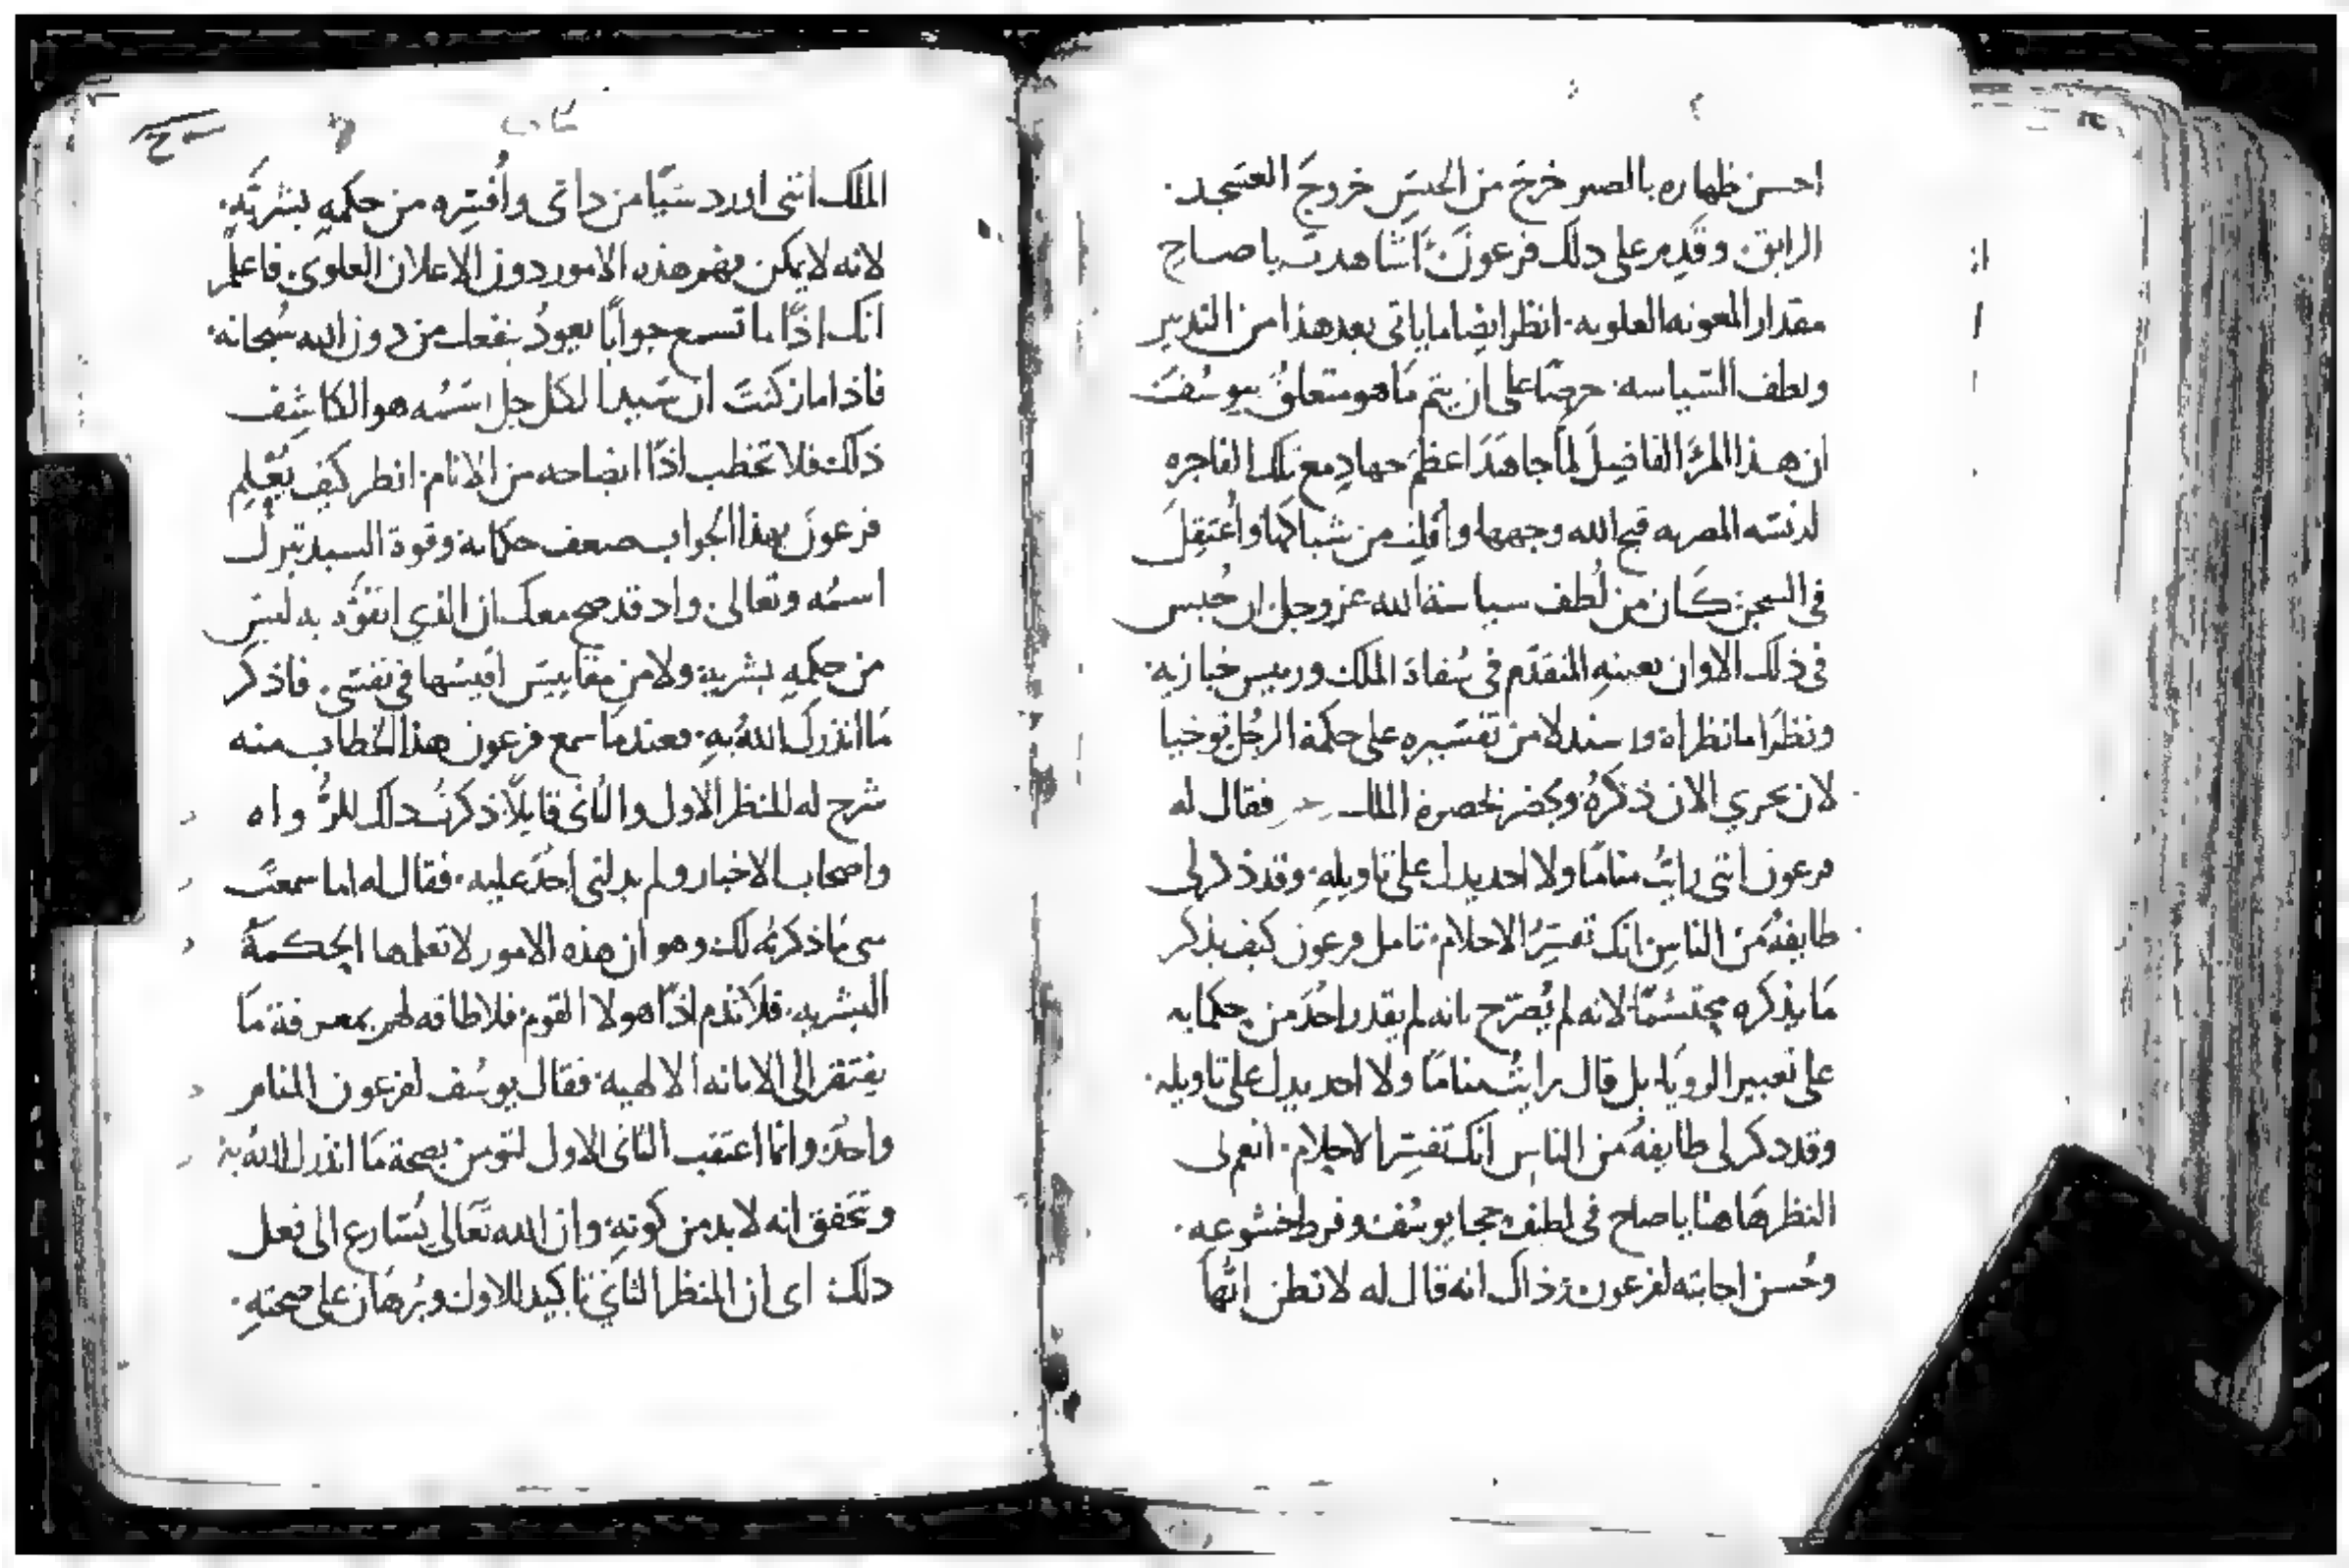 احسن ظهاره بالصبر خرج من الحبس خروج العسجد.
الرايق. وقدم على دلك فرعون اشاهدت ياصاح
مقدار المعونه العلويه. انظر ايضا ما ياتى بعد هذا من التدبير
ولطف السياسه. حرصا على ان يتم ما هو متعلق بيوسف
ان هذا المرء الفاضل لما جاهد اعظم جهاد مع تلك الفاجره
لدنسه المصريه قبح الله وجهها وأفلت من شباكها وأعتقل
في السجن كان من لطف سياسة الله عز وجل ان حبس
في ذلك الاوان بعينه المتقدم في سقاة الملك ورييس خبازيه.
ونظرا ما نظراه واستدلا من تفسيره على حكمة الرجل توخيا
لان يجري الان ذكره ويحضر بحضرة الملك فقال له
فرعون انني رايت مناما ولا احد يدل على تاويله. وقد ذكر لى
طايفه من الناس انك تفسر الاحلام. تامل فرعون كيف يذكر
ما يذكره محتشما لانه لم يصرح بانه لم يقدر احد من حكمايه
على تعبير الرويا. بل قال رايت مناما ولا احد يدل على تاويله.
وقد دكر لى طايفه من الناس انك تفسر الاحلام. انعم لى
النظر هاهنا ياصاح في لطف حجا يوسف وفرط خشوعه.
وحسن اجابته لفرعون ذاك انه قال له لا تظن ايها
الملك انني اورد شيا من داتى وأفسره من حكمه بشريه.
لانه لا يمكن فهم هذه الامور دون الاعلان العلوى. فاعلم
انك اذا ما تسمع جوابا يعود بنفعك من دون الله سبحانه.
فاذا ما زكنت ان سيد الكل جل اسمه هو الكاشف
ذلك فلا تخطب اذا ايضاحه من الانام. انظر كيف يعلم
فرعون بهذا الجواب ضعف حكمايه وقوة السيد تبرك
اسمه وتعالى. واد قد صح معك ان الذي اتفوه به ليس
من حكمه بشرية ولا من مقاييس اقيسها في نفسى. فاذكر
ما انذرك الله به. فعندما سمع فرعون هذا الخطاب منه
شرح له المنظر الاول والثانى قايلا ذكرت دلك للرواه
واصحاب الاخبار ولم يدلني احد عليه. فقال له اما سمعت
مني ما ذكرته لك وهو ان هذه الامور لا تعلمها الحكمة
البشريه. فلا تذم اذا هولا القوم فلا طاقه لهم بمعرفة ما
يفتقر الى الابانه الالهيه. فقال يوسف لفرعون المنام
واحد. وانما اعتقب الثانى الاول لتومن بصحة ما انذرك الله به
وتحقق انه لابد من كونه. وان الله تعالى يسارع الى فعل
دلك اى ان المنظر الثاني تاكيد للاول وبرهان على صحته.